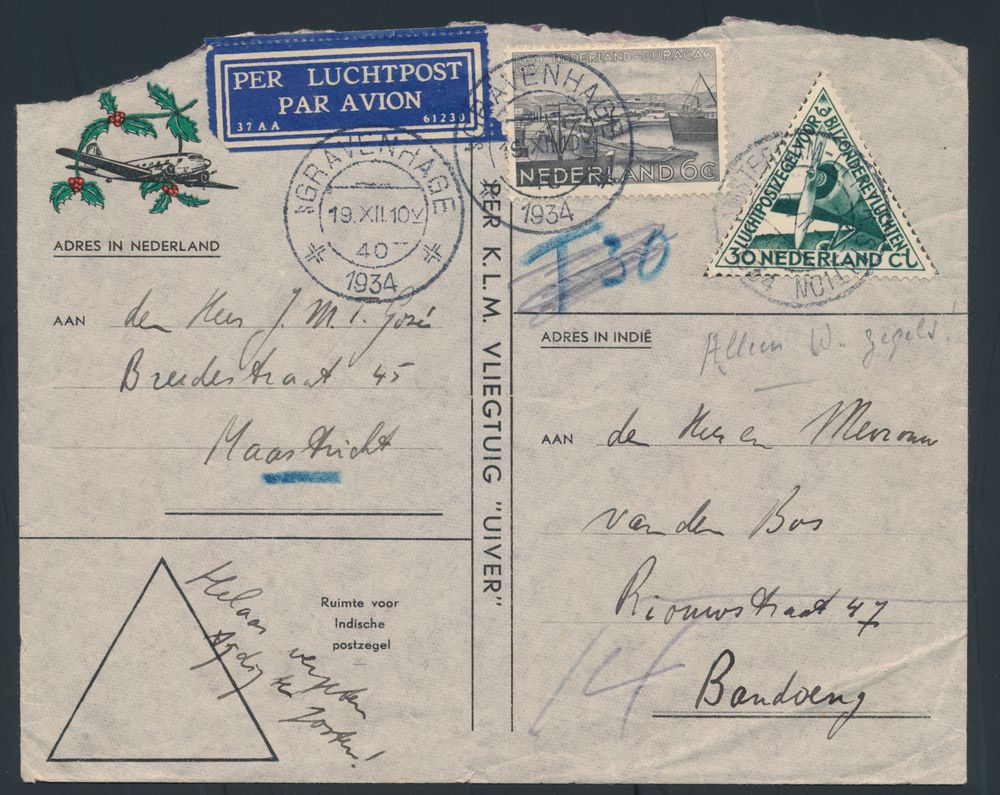 PER LUCHTPOST
PAR AVION
37 AA 61230
1634 NEDERLAND-CURAÇAO
NEDERLAND 6 C
'SGRAVENHAGE
19.XII.10V
40
1934
'SGRAVENHAGE
19.XII.10V
40
1934
LUCHTPOSTZEGEL VOOR BIJZONDERE VLUCHTEN
30 NEDERLAND CT
T 30
ADRES IN NEDERLAND
AAN den Heer J. M. I. José
Breedestraat 45
Maastricht
PER K.L.M. VLIEGTUIG "UIVER"
ADRES IN INDIË
Alleen W. gegeld!
AAN de Heer en Mevrouw
van den Bos
Riouwstraat 47
Bandoeng
14
Ruimte voor
Indische
postzegel
Helaas vergeten